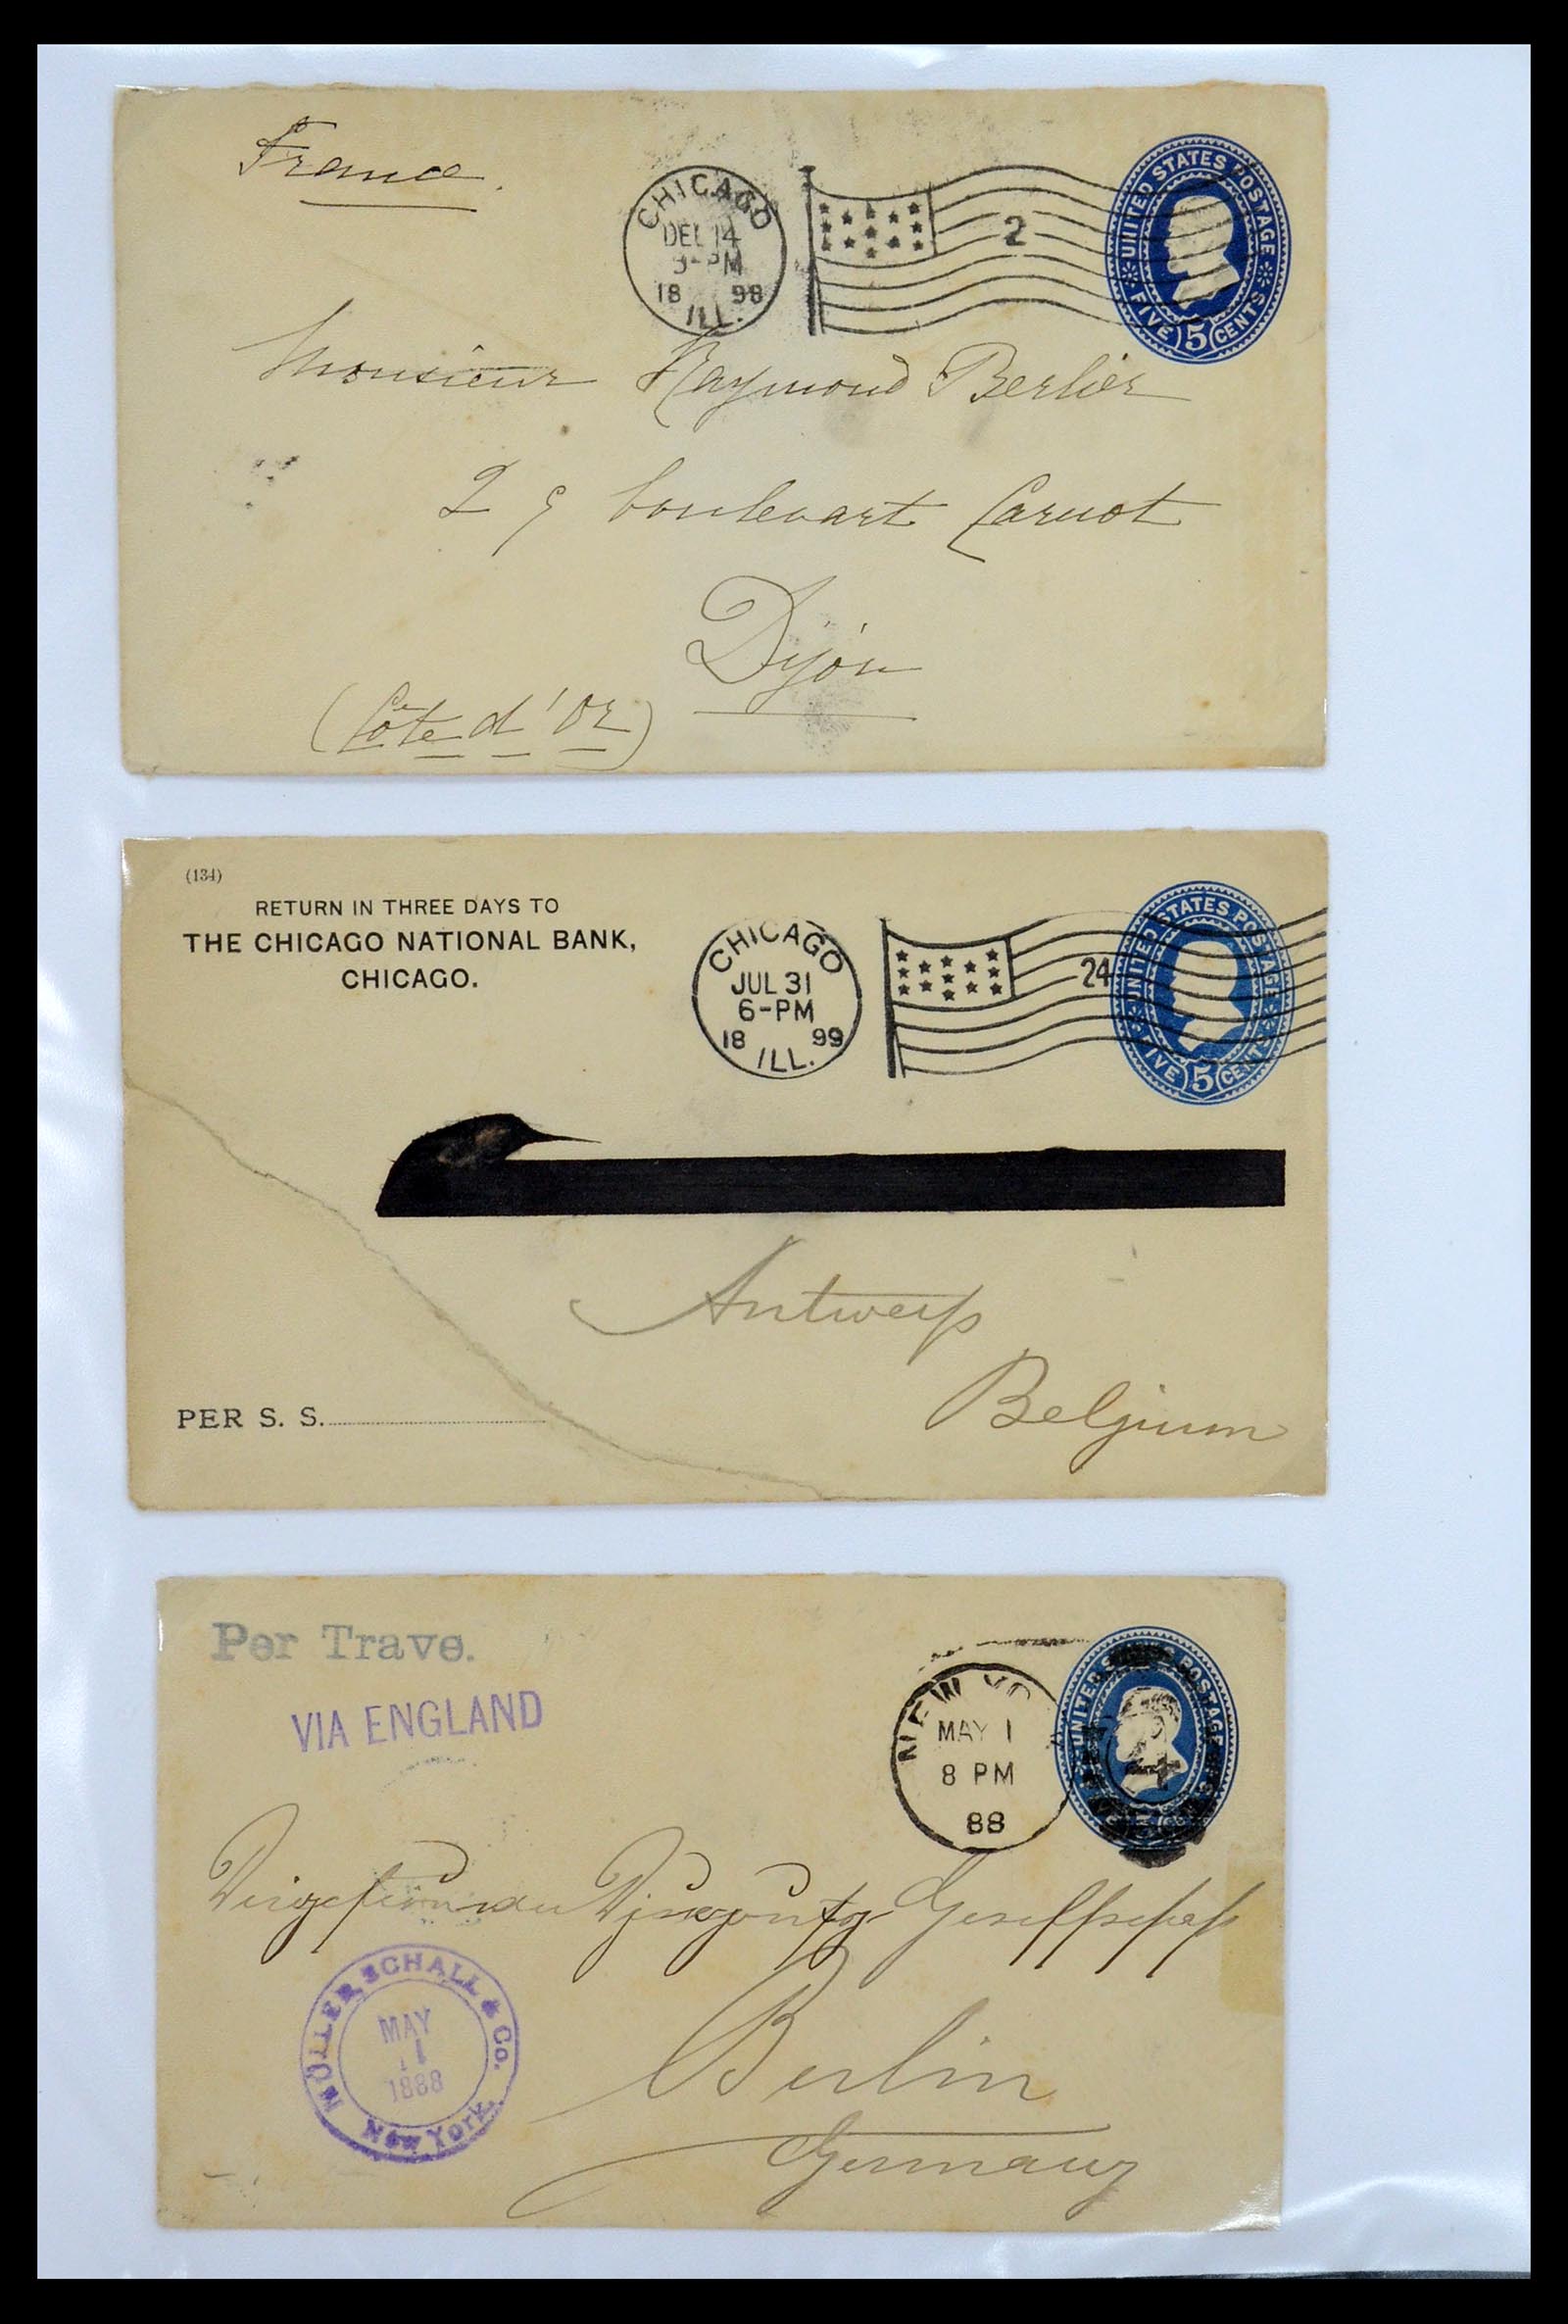 France.
CHICAGO
DEC 14
9-PM
18 98
ILL.
2
UNITED STATES POSTAGE
FIVE 5 CENTS
Monsieur Raymond Berlier
29 boulevart Carnot
Dijon
(Côte d'Or)
(134)
RETURN IN THREE DAYS TO
THE CHICAGO NATIONAL BANK,
CHICAGO.
CHICAGO
JUL 31
6-PM
18 99
ILL.
24
UNITED STATES POSTAGE
FIVE 5 CENTS
Antwerp
Belgium
PER S. S.
Per Trave.
VIA ENGLAND
NEW YO
MAY 1
8 PM
88
UNITED POSTAGE
Gesellschaft
MÜLLER SCHALL & Co.
MAY
1
1888
New York.
Berlin
Germany